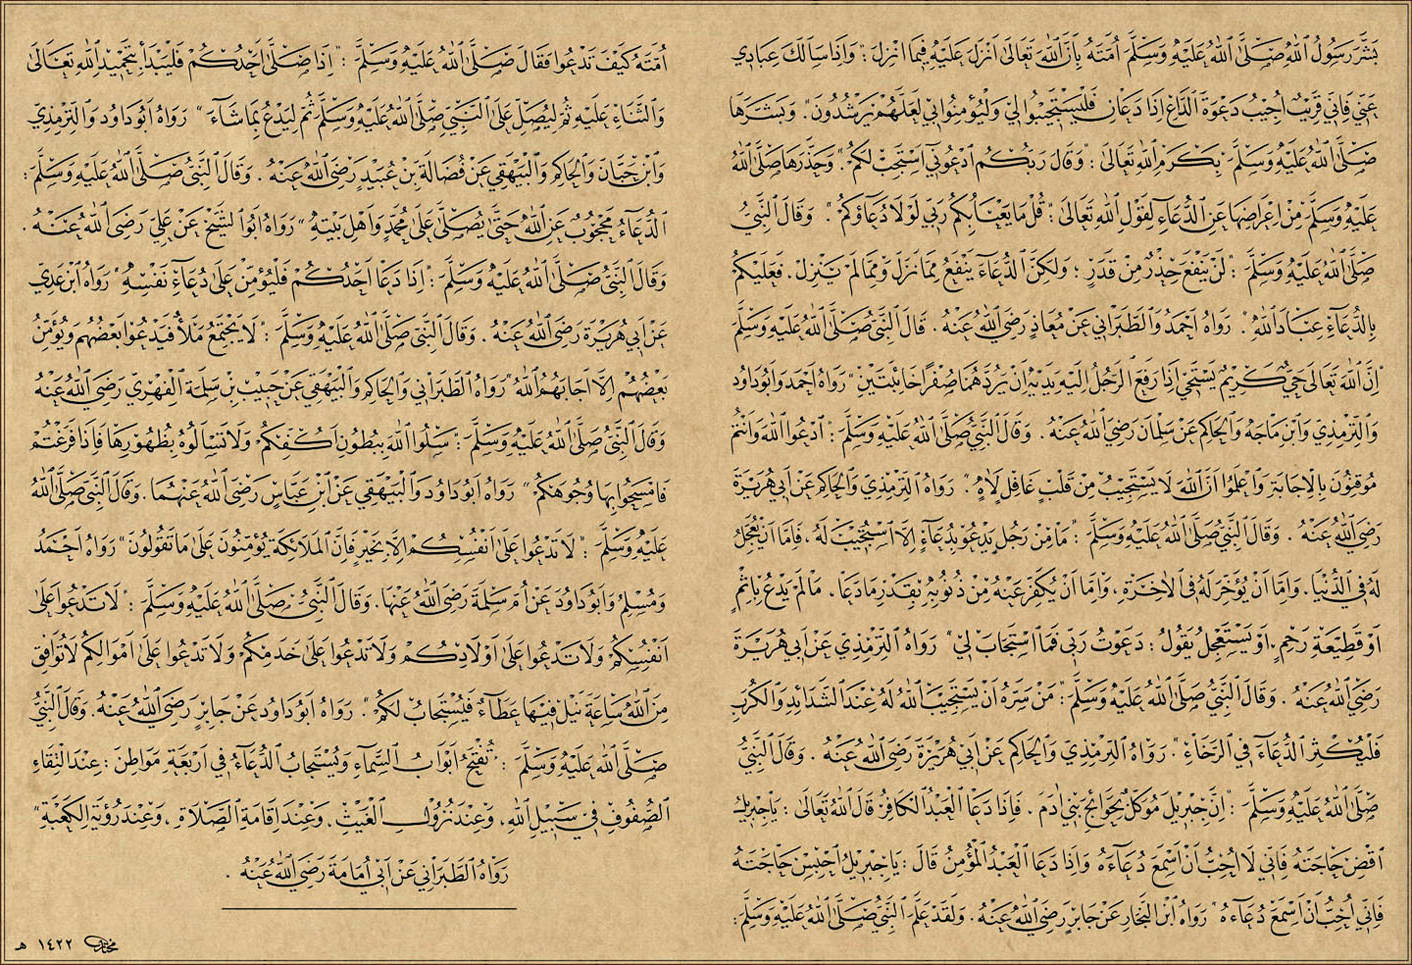 بَشَّرَ رَسُولُ اللهِ صَلَّى اللهُ عَلَيْهِ وَسَلَّمَ اُمَّتَهُ بِاَنَّ اللهَ تَعَالَى اَنْزَلَ عَلَيْهِ فِيمَا اَنْزَلَ : " وَاِذَا سَاَلَكَ عِبَادِي
عَنِّي فَاِنِّي قَرِيْبٌ اُجِيْبُ دَعْوَةَ الدَّاعِ اِذَا دَعَانِ فَلْيَسْتَجِيْبُوا لِي وَلْيُؤْمِنُوا بِي لَعَلَّهُمْ يَرْشُدُونَ " . وَبَشَّرَهَا
صَلَّى اللهُ عَلَيْهِ وَسَلَّمَ بِكَرَمِ اللهِ تَعَالَى : " وَقَالَ رَبُّكُمُ ادْعُونِي اَسْتَجِبْ لَكُمْ " . وَحَذَّرَهَا صَلَّى اللهُ
عَلَيْهِ وَسَلَّمَ مِنْ اِعْرَاضِهَا عَنِ الدُّعَاءِ لِقَوْلِ اللهِ تَعَالَى : " قُلْ مَا يَعْبَأُ بِكُمْ رَبِّي لَوْلَا دُعَاؤُكُمْ " . وَقَالَ النَّبِيُّ
صَلَّى اللهُ عَلَيْهِ وَسَلَّمَ : " لَنْ يَنْفَعَ حَذَرٌ مِنْ قَدَرٍ ؛ وَلَكِنَّ الدُّعَاءَ يَنْفَعُ مِمَّا نَزَلَ وَمِمَّا لَمْ يَنْزِلْ . فَعَلَيْكُمْ
بِالدُّعَاءِ عِبَادَ اللهِ " . رَوَاهُ اَحْمَدُ وَالطَّبَرَانِي عَنْ مُعَاذٍ رَضِيَ اللهُ عَنْهُ . قَالَ النَّبِيُّ صَلَّى اللهُ عَلَيْهِ وَسَلَّمَ
" اِنَّ اللهَ تَعَالَى حَيِيٌّ كَرِيْمٌ يَسْتَحْيِي اِذَا رَفَعَ الرَّجُلُ اِلَيْهِ يَدَيْهِ اَنْ يَرُدَّهُمَا صِفْرًا خَائِبَتَيْنِ " رَوَاهُ اَحْمَدُ وَاَبُو دَاوُد
وَالتِّرْمِذِي وَابْنُ مَاجَهْ وَالْحَاكِمُ عَنْ سَلْمَانَ رَضِيَ اللهُ عَنْهُ . وَقَالَ النَّبِيُّ صَلَّى اللهُ عَلَيْهِ وَسَلَّمَ : " اُدْعُوا اللهَ وَاَنْتُمْ
مُوقِنُونَ بِالْاِجَابَةِ وَاعْلَمُوا اَنَّ اللهَ لَا يَسْتَجِيْبُ مِنْ قَلْبٍ غَافِلٍ لَاهٍ " . رَوَاهُ التِّرْمِذِي وَالْحَاكِمُ عَنْ اَبِي هُرَيْرَةَ
رَضِيَ اللهُ عَنْهُ . وَقَالَ النَّبِيُّ صَلَّى اللهُ عَلَيْهِ وَسَلَّمَ : " مَا مِنْ رَجُلٍ يَدْعُو بِدُعَاءٍ اِلَّا اسْتُجِيْبَ لَهُ ، فَاِمَّا اَنْ يُعَجَّلَ
لَهُ فِي الدُّنْيَا ، وَاِمَّا اَنْ يُؤَخَّرَ لَهُ فِي الْاٰخِرَةِ ، وَاِمَّا اَنْ يُكَفَّرَ عَنْهُ مِنْ ذُنُوبِهِ بِقَدْرِ مَا دَعَا . مَا لَمْ يَدْعُ بِاِثْمٍ
اَوْ قَطِيْعَةِ رَحِمٍ ، اَوْ يَسْتَعْجِلْ يَقُولُ : دَعَوْتُ رَبِّي فَمَا اسْتَجَابَ لِي " رَوَاهُ التِّرْمِذِي عَنْ اَبِي هُرَيْرَةَ
رَضِيَ اللهُ عَنْهُ . وَقَالَ النَّبِيُّ صَلَّى اللهُ عَلَيْهِ وَسَلَّمَ : " مَنْ سَرَّهُ اَنْ يَسْتَجِيْبَ اللهُ لَهُ عِنْدَ الشَّدَائِدِ وَالْكُرَبِ
فَلْيُكْثِرِ الدُّعَاءَ فِي الرَّخَاءِ " . رَوَاهُ التِّرْمِذِي وَالْحَاكِمُ عَنْ اَبِي هُرَيْرَةَ رَضِيَ اللهُ عَنْهُ . وَقَالَ النَّبِيُّ
صَلَّى اللهُ عَلَيْهِ وَسَلَّمَ : " اِنَّ جِبْرِيْلَ مُوَكَّلٌ بِحَوَائِجِ بَنِي اٰدَمَ . فَاِذَا دَعَا الْعَبْدُ الْكَافِرُ قَالَ اللهُ تَعَالَى : يَا جِبْرِيْلُ
اقْضِ حَاجَتَهُ فَاِنِّي لَا اُحِبُّ اَنْ اَسْمَعَ دُعَاءَهُ وَاِذَا دَعَا الْعَبْدُ الْمُؤْمِنُ قَالَ : يَا جِبْرِيْلُ احْبِسْ حَاجَتَهُ
فَاِنِّي اُحِبُّ اَنْ اَسْمَعَ دُعَاءَهُ " رَوَاهُ ابْنُ النَّجَّارِ عَنْ جَابِرٍ رَضِيَ اللهُ عَنْهُ . وَلَقَدْ عَلَّمَ النَّبِيُّ صَلَّى اللهُ عَلَيْهِ وَسَلَّمَ :
اُمَّتَهُ كَيْفَ تَدْعُوا فَقَالَ صَلَّى اللهُ عَلَيْهِ وَسَلَّمَ : " اِذَا صَلَّى اَحَدُكُمْ فَلْيَبْدَأْ بِتَحْمِيْدِ اللهِ تَعَالَى
وَالثَّنَاءِ عَلَيْهِ ثُمَّ لْيُصَلِّ عَلَى النَّبِيِّ صَلَّى اللهُ عَلَيْهِ وَسَلَّمَ ثُمَّ لْيَدْعُ بِمَا شَاءَ " رَوَاهُ اَبُو دَاوُد وَالتِّرْمِذِي
وَابْنُ حِبَّانَ وَالْحَاكِمُ وَالْبَيْهَقِي عَنْ فُضَالَةَ بْنِ عُبَيْدٍ رَضِيَ اللهُ عَنْهُ . وَقَالَ النَّبِيُّ صَلَّى اللهُ عَلَيْهِ وَسَلَّمَ :
الدُّعَاءُ مَحْجُوبٌ عَنِ اللهِ حَتَّى يُصَلَّى عَلَى مُحَمَّدٍ وَاَهْلِ بَيْتِهِ " رَوَاهُ اَبُو الشَّيْخِ عَنْ عَلِيٍّ رَضِيَ اللهُ عَنْهُ .
وَقَالَ النَّبِيُّ صَلَّى اللهُ عَلَيْهِ وَسَلَّمَ : " اِذَا دَعَا اَحَدُكُمْ فَلْيُؤَمِّنْ عَلَى دُعَاءِ نَفْسِهِ " رَوَاهُ ابْنُ عَدِيّ
عَنْ اَبِي هُرَيْرَةَ رَضِيَ اللهُ عَنْهُ . وَقَالَ النَّبِيُّ صَلَّى اللهُ عَلَيْهِ وَسَلَّمَ : " لَا يَجْتَمِعُ مَلَأٌ فَيَدْعُوا بَعْضُهُمْ وَيُؤَمِّنُ
بَعْضُهُمْ اِلَّا اَجَابَهُمُ اللهُ " رَوَاهُ الطَّبَرَانِي وَالْحَاكِمُ وَالْبَيْهَقِي عَنْ حَبِيْبِ بْنِ سَلَمَةَ الْفِهْرِي رَضِيَ اللهُ عَنْهُ
وَقَالَ النَّبِيُّ صَلَّى اللهُ عَلَيْهِ وَسَلَّمَ : " سَلُوا اللهَ بِبُطُونِ اَكُفِّكُمْ وَلَا تَسْاَلُوهُ بِظُهُورِهَا فَاِذَا فَرَغْتُمْ
فَامْسَحُوا بِهَا وُجُوهَكُمْ " رَوَاهُ اَبُو دَاوُد وَالْبَيْهَقِي عَنِ ابْنِ عَبَّاسٍ رَضِيَ اللهُ عَنْهُمَا . وَقَالَ النَّبِيُّ صَلَّى اللهُ
عَلَيْهِ وَسَلَّمَ : " لَا تَدْعُوا عَلَى اَنْفُسِكُمْ اِلَّا بِخَيْرٍ فَاِنَّ الْمَلَائِكَةَ يُؤَمِّنُونَ عَلَى مَا تَقُولُونَ " رَوَاهُ اَحْمَدُ
وَمُسْلِمٌ وَاَبُو دَاوُدَ عَنْ اُمِّ سَلَمَةَ رَضِيَ اللهُ عَنْهَا . وَقَالَ النَّبِيُّ صَلَّى اللهُ عَلَيْهِ وَسَلَّمَ : " لَا تَدْعُوا عَلَى
اَنْفُسِكُمْ وَلَا تَدْعُوا عَلَى اَوْلَادِكُمْ وَلَا تَدْعُوا عَلَى خَدَمِكُمْ وَلَا تَدْعُوا عَلَى اَمْوَالِكُمْ لَا تُوَافِقُ
مِنَ اللهِ سَاعَةَ نَيْلٍ فِيْهَا عَطَاءٌ فَيُسْتَجَابُ لَكُمْ " . رَوَاهُ اَبُو دَاوُد عَنْ جَابِرٍ رَضِيَ اللهُ عَنْهُ . وَقَالَ النَّبِيُّ
صَلَّى اللهُ عَلَيْهِ وَسَلَّمَ : " تُفْتَحُ اَبْوَابُ السَّمَاءِ وَيُسْتَجَابُ الدُّعَاءُ فِي اَرْبَعَةِ مَوَاطِنَ : عِنْدَ الْتِقَاءِ
الصُّفُوفِ فِي سَبِيْلِ اللهِ ، وَعِنْدَ نُزُولِ الْغَيْثِ ، وَعِنْدَ اِقَامَةِ الصَّلَاةِ ، وَعِنْدَ رُؤْيَةِ الْكَعْبَةِ "
رَوَاهُ الطَّبَرَانِي عَنْ اَبِي اُمَامَةَ رَضِيَ اللهُ عَنْهُ .
١٤٢٢ هـ